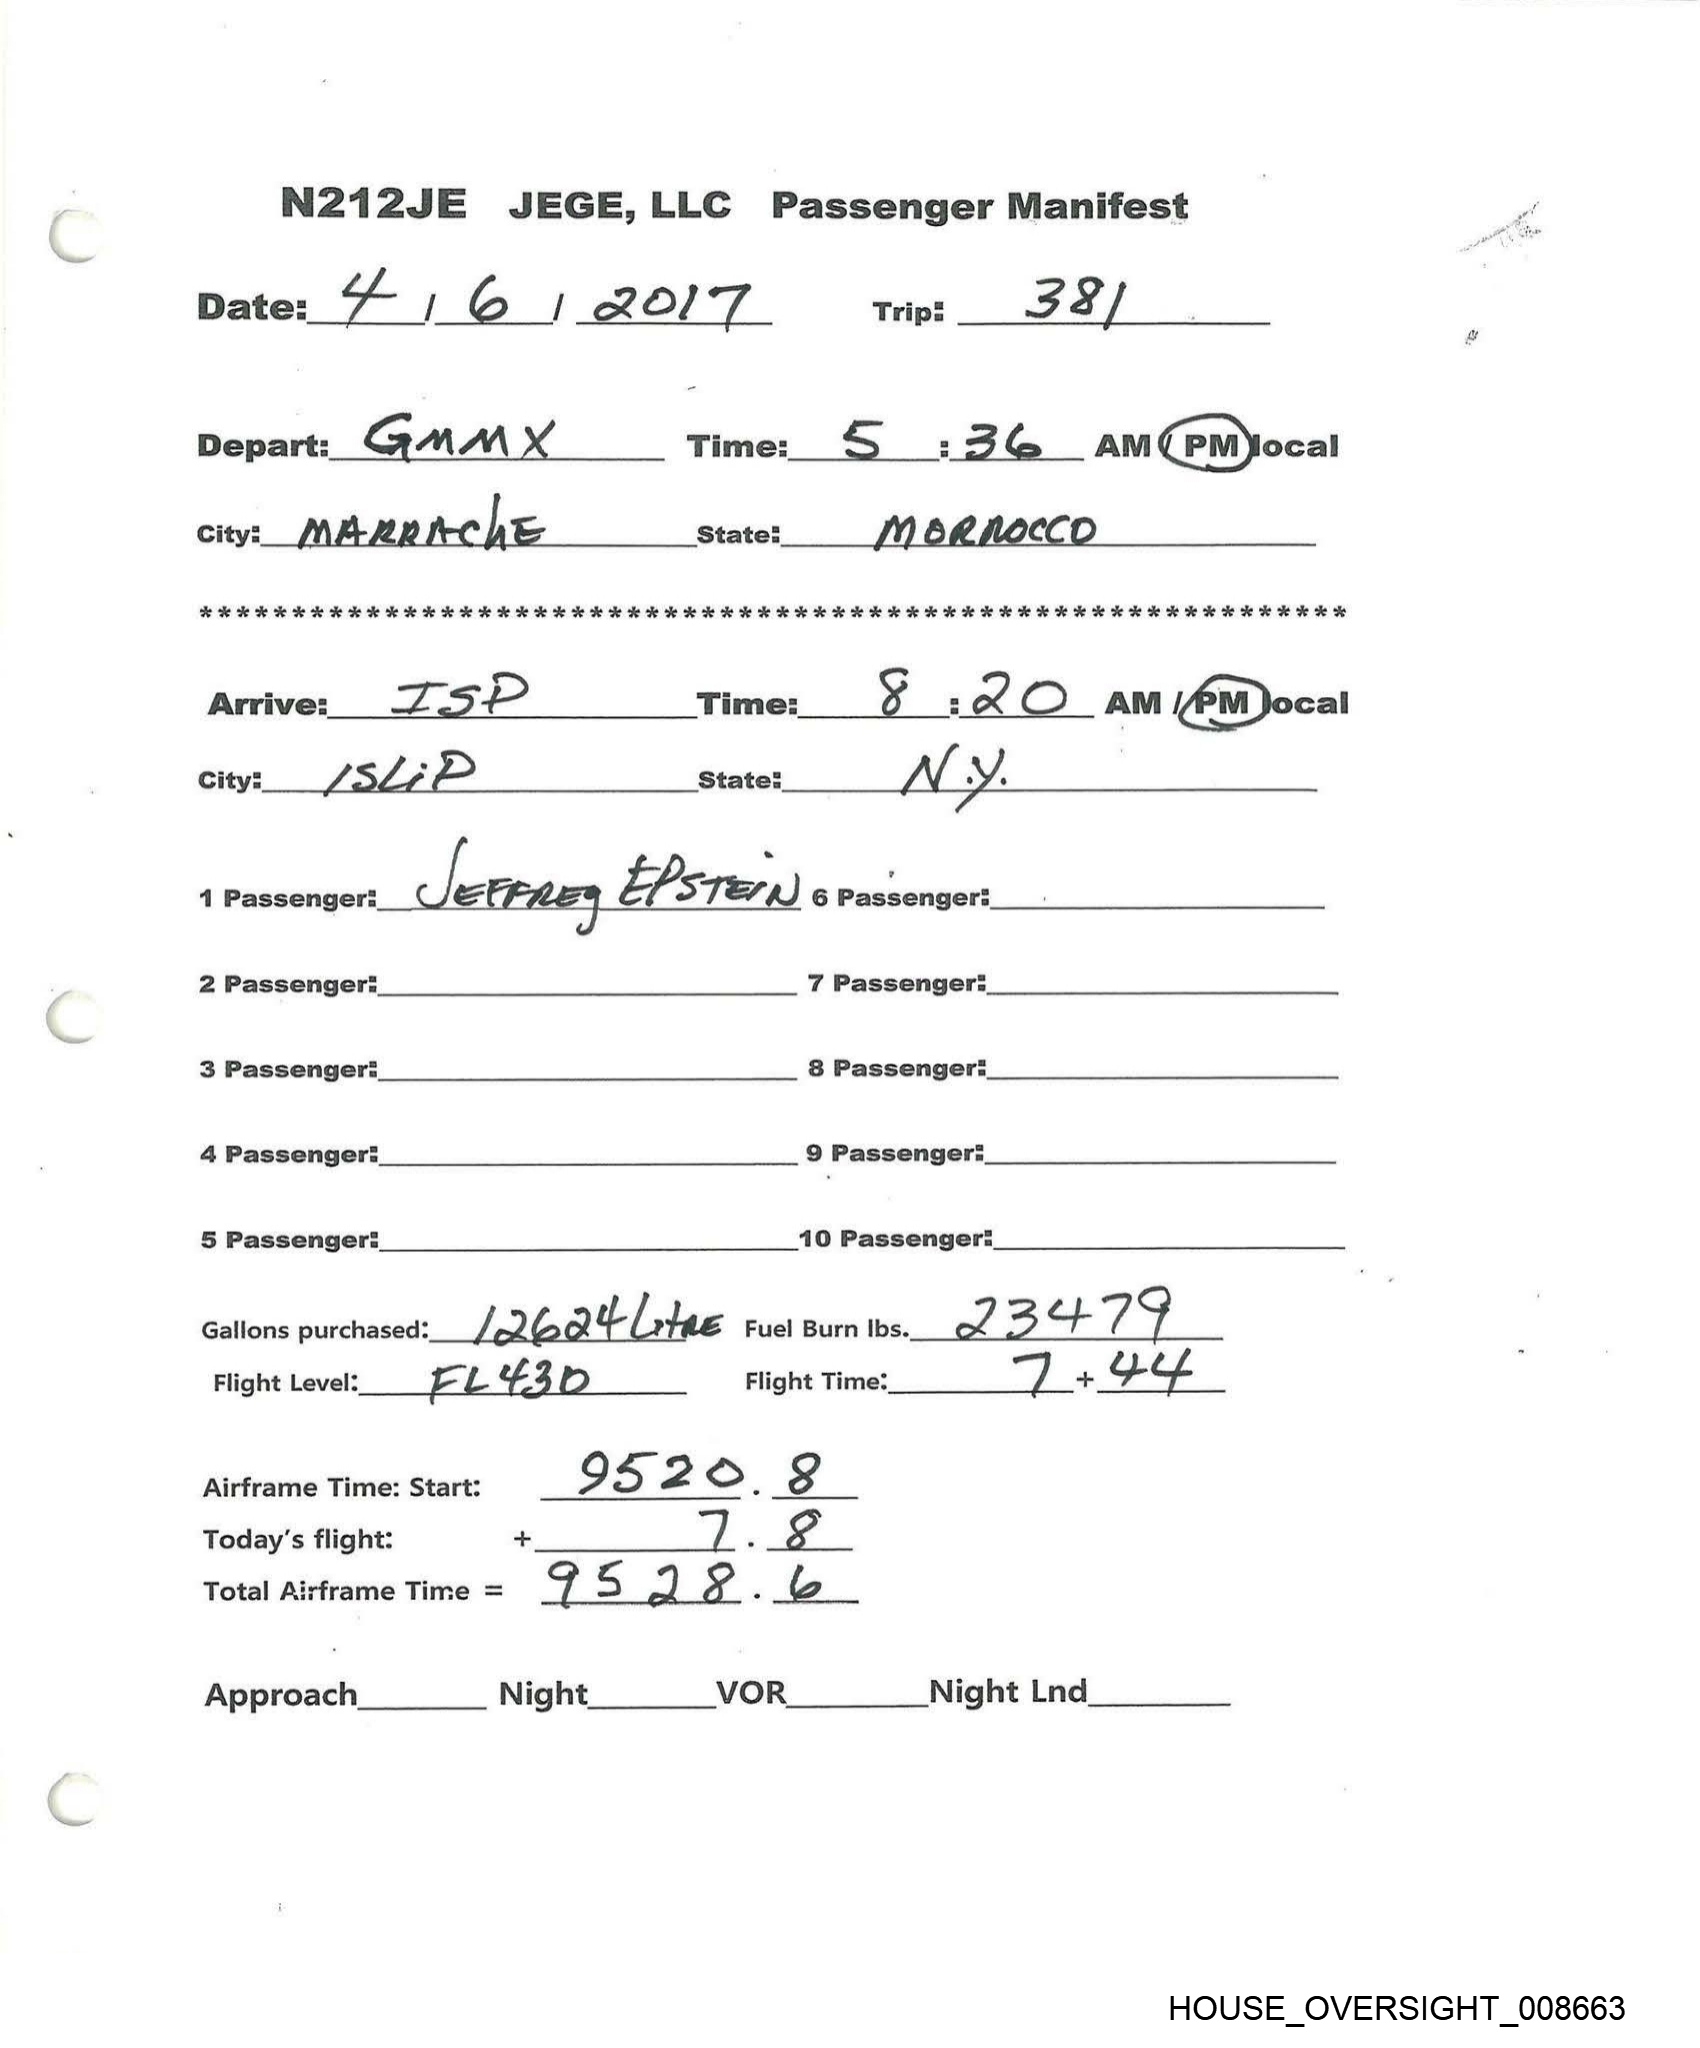 N212JE JEGE, LLC Passenger Manifest
Date: 4 / 6 / 2017 Trip: 381
Depart: GMMX Time: 5 : 36 AM / PM local
City: MARRAChE State: MORROCCO
*****************************************************************
Arrive: ISP Time: 8 : 20 AM / PM local
City: ISLiP State: N.Y.
1 Passenger: JEFFREy EPSTEIN 6 Passenger:
2 Passenger: 7 Passenger:
3 Passenger: 8 Passenger:
4 Passenger: 9 Passenger:
5 Passenger: 10 Passenger:
Gallons purchased: 12624 LitRE Fuel Burn lbs. 23479
Flight Level: FL430 Flight Time: 7 + 44
Airframe Time: Start: 9520 . 8
Today's flight: + 7 . 8
Total Airframe Time = 9528 . 6
Approach Night VOR Night Lnd
HOUSE_OVERSIGHT_008663